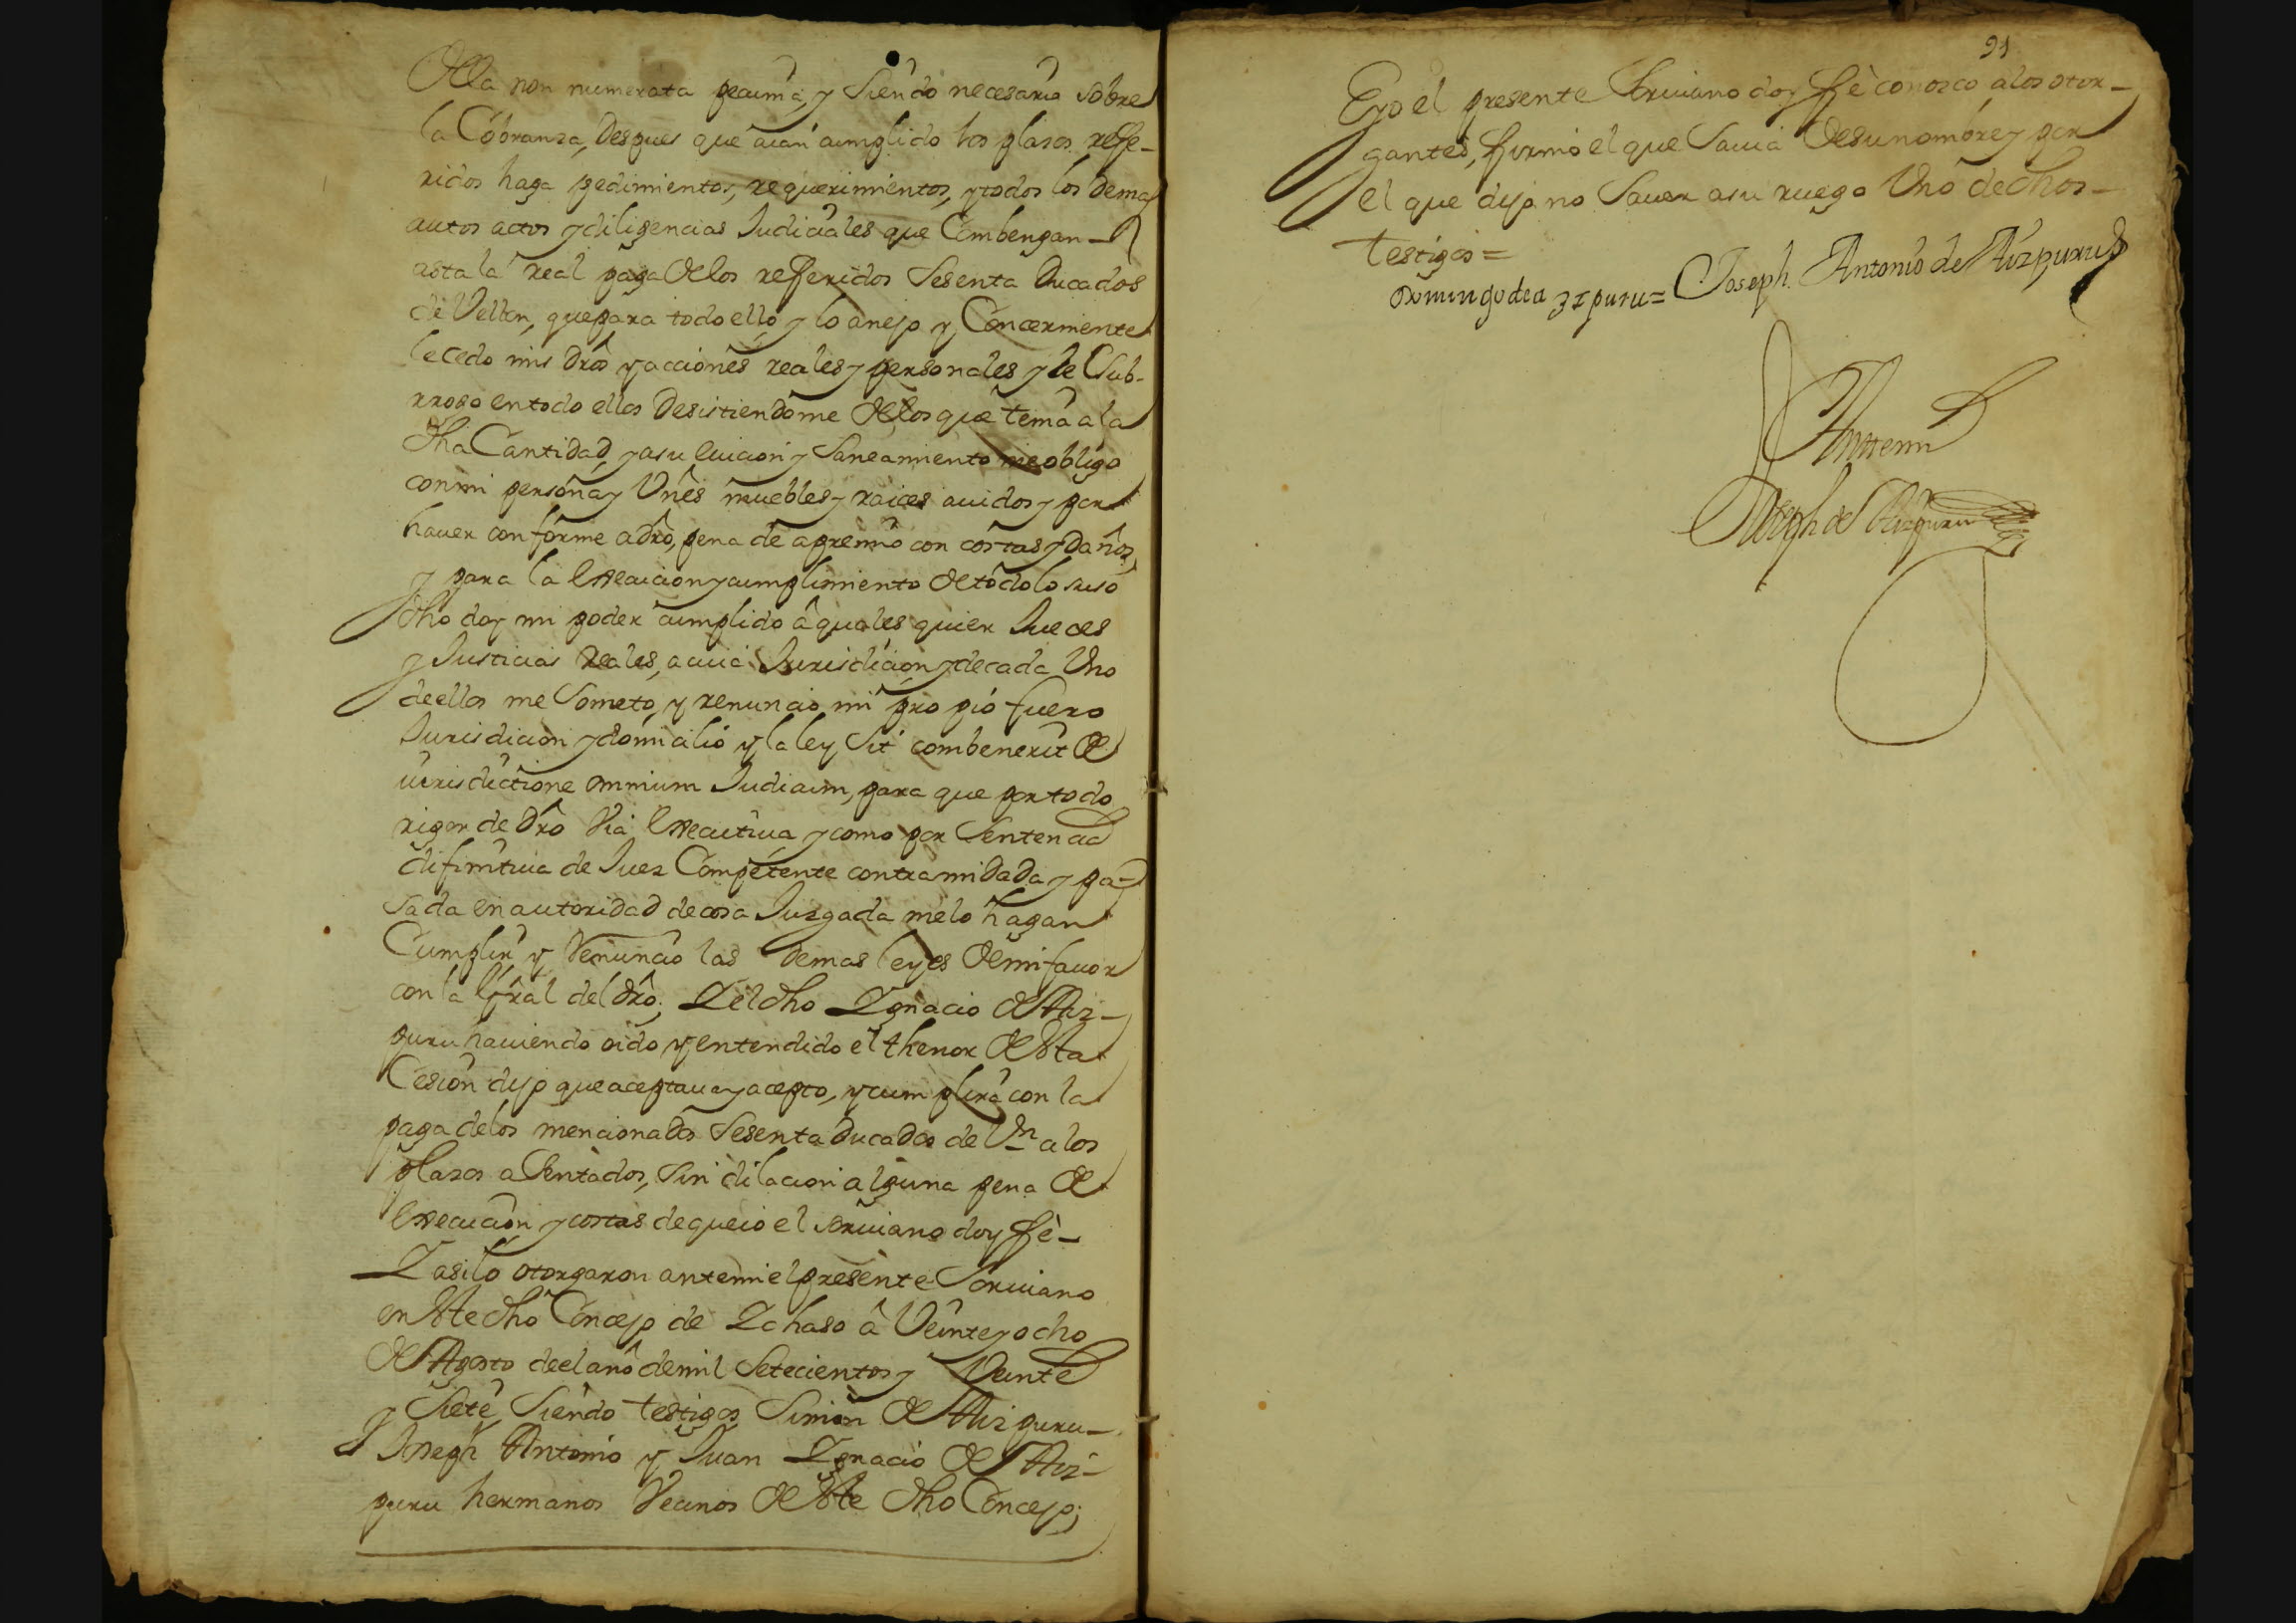 della non numerata pecunia, y Siendo necesario sobre
la Cobranza, Despues que aian cumplido los plasos refe-
ridos haga pedimientos, requerimientos, y todos los demas
autos actos y diligencias Judiciales que Combengan
asta la real paga de los referidos Sesenta Ducados
de Vellon, que para todo ello y lo anejo y Concerniente
le cedo mis dros y acciones reales y personales y le Sub-
rrogo en todo ellos Desistiendome de los que tenia a la
dha Cantidad, y a su evicion y Saneamiento me obligo
con mi persona y Vnes muebles y raices auidos y por
hauer conforme a dro, pena de apremio con costas y Daños,
y para la execucion y cumplimiento de todo lo suso
dho doy mi poder cumplido â quales quier Jueces
y Justicias Reales, a cuia Jurisdicion y de cada Vno
de ellos me Someto, y renuncio mi propio fuero
Jurisdicion y domicilio y la ley Sit combenerit de
iurisdictione omnium Judicum, para que por todo
rigor de dro Via executiua y como por Sentencia
difinitiua de Juez Competente contra mi dada y pa-
sada en autoridad de cosa Juzgada me lo hagan
Cumplir y Renuncio las demas leyes de mi fauor
con la Gral del dro; Y el dho Ygnacio de Aiz-
puru hauiendo oido y entendido el thenor de esta
Cesion dijo que aceptaua y acepto, y cumplirâ con la
paga de los mencionados Sesenta ducados de Vn a los
plasos asentados, Sin dilacion alguna pena de
execucion y costas de que io el escriuano doy fè-
Y asi lo otorgaron ante mi el presente Scriuano
en este dho Concejo de Ychaso â Veinte y ocho
de Agosto de el año de mil Setecientos y Veinte
y Siete, Siendo testigos Simon de Aizpuru-
Joseph Antonio y Juan Ygnacio de Aiz-
puru hermanos Vecinos de este dho Concejo;
91
E yo el presente Scriuano doy fè conosco a los otor-
gantes, firmó el que Sauia de su nombre y por
el que dijo no Sauer a su ruego Uno de dhos-
testigos=
Domingo de aizpuru= Joseph Antonio de Aizpuru
Ante mi
Joseph de Aizpuru